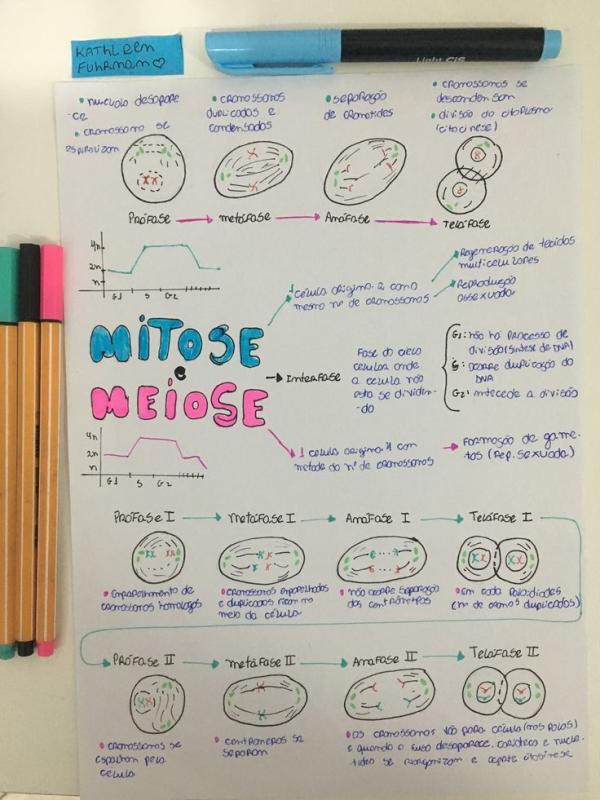 KATHLEEN
FUHRMANN
Light
• nucléolo desapare
-ce
• cromossomo se
espiralizam
• cromossomos
duplicados e
condensados
• separação
de cromátides
• cromossomos se
descondensam
• divisão do citoplasma
(citocinese)
Prófase
metáfase
Anáfase
Telófase
4n
2n
n
G1 S G2
1 célula origina 2 com o
mesmo nº de cromossomos
Regeneração de tecidos
multicelulares
Reprodução
assexuada
MITOSE
e
MEIOSE
Interfase
Fase do ciclo
celular onde
a célula não
esta se dividin-
-do
G1: não há processo de
divisão (síntese de DNA)
S: ocorre duplicação do
DNA
G2: antecede a divisão
4n
2n
n
G1 S G2
1 célula origina 4 com
metade do nº de cromossomos
Formação de game-
tos (Rep. sexuada)
Prófase I
metáfase I
Anáfase I
Telófase I
• Emparelhamento de
cromossomos homólogos
• cromossomos emparelhados
e duplicados ficam no
meio da célula
• não ocorre separação
dos centrômeros
• Em cada polo díades
(nº de cromos duplicados)
Prófase II
metáfase II
Anáfase II
Telófase II
• cromossomos se
espalham pela
célula
• centrômeros se
separam
• os cromossomos vão para célula (nos polos)
e quando o fuso desaparece, carioteca e nucle-
se reorganizam e citocinese